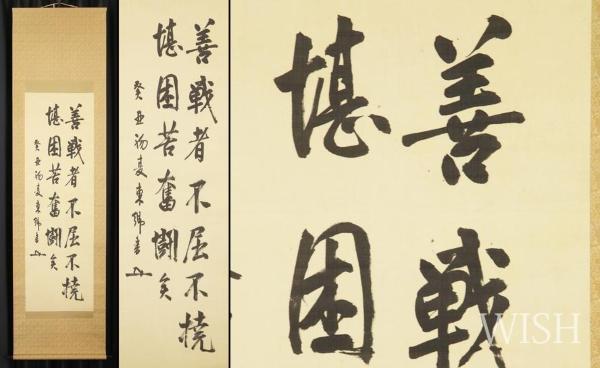 善戦者不屈不撓
堪困苦奮闘矣
癸亥初夏 東郷書
善戦者不屈不撓
堪困苦奮闘矣
癸亥初夏 東郷書
善戦
堪困
WISH